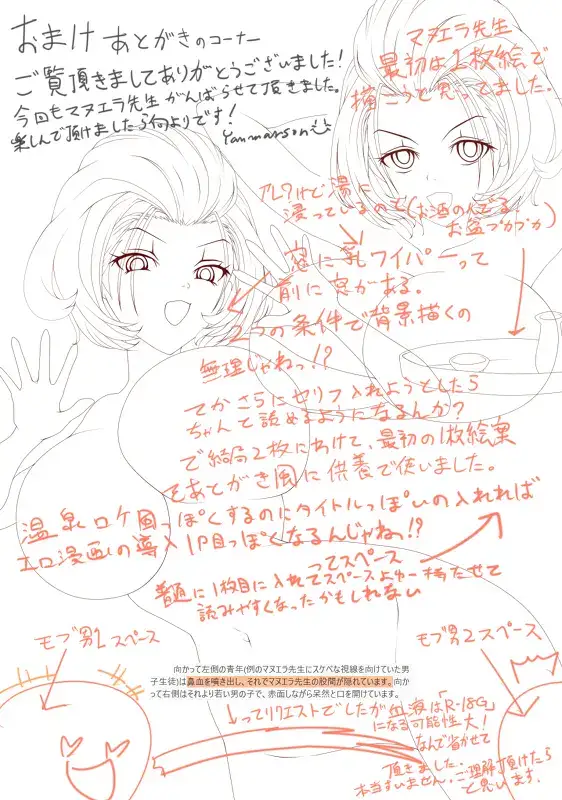 おまけ あとがきのコーナー
ご覧頂きましてありがとうございました!
今回もマヌエラ先生がんばらせて頂きました。
楽しんで頂けましたら何よりです!
Yanmarson
マヌエラ先生
最初は1枚絵で
描こうと思ってました。
アレ?けど湯に
浸っているので(お酒のんでる
お盆プカプカ
窓に乳ワイパーって
前に窓がある。
2つの条件で背景描くの
無理じゃねっ!?
てかさらにセリフ入れようとしたら
ちゃんと読めるようになるんか?
で結局2枚にわけて、最初の1枚絵案
をあとがき風に供養で使いました。
温泉ロケ風っぽくするのにタイトルっぽいの入れれば
エロ漫画の導入1P目っぽくなるんじゃねっ!?
ってスペース
普通に1枚目に入れてスペースよゆー持たせて
読みやすくなったかもしれない
モブ男1スペース
モブ男2スペース
向かって左側の青年(例のマヌエラ先生にスケベな視線を向けていた男
子生徒)は鼻血を噴き出し、それでマヌエラ先生の股間が隠れています。向か
って右側はそれより若い男の子で、赤面しながら呆然と口を開けています。
↓ってリクエストでしたが血液は「R-18G」
になる可能性大!
なんで省かせて
頂きました。
本当すいません。ご理解頂けたら
と思います。